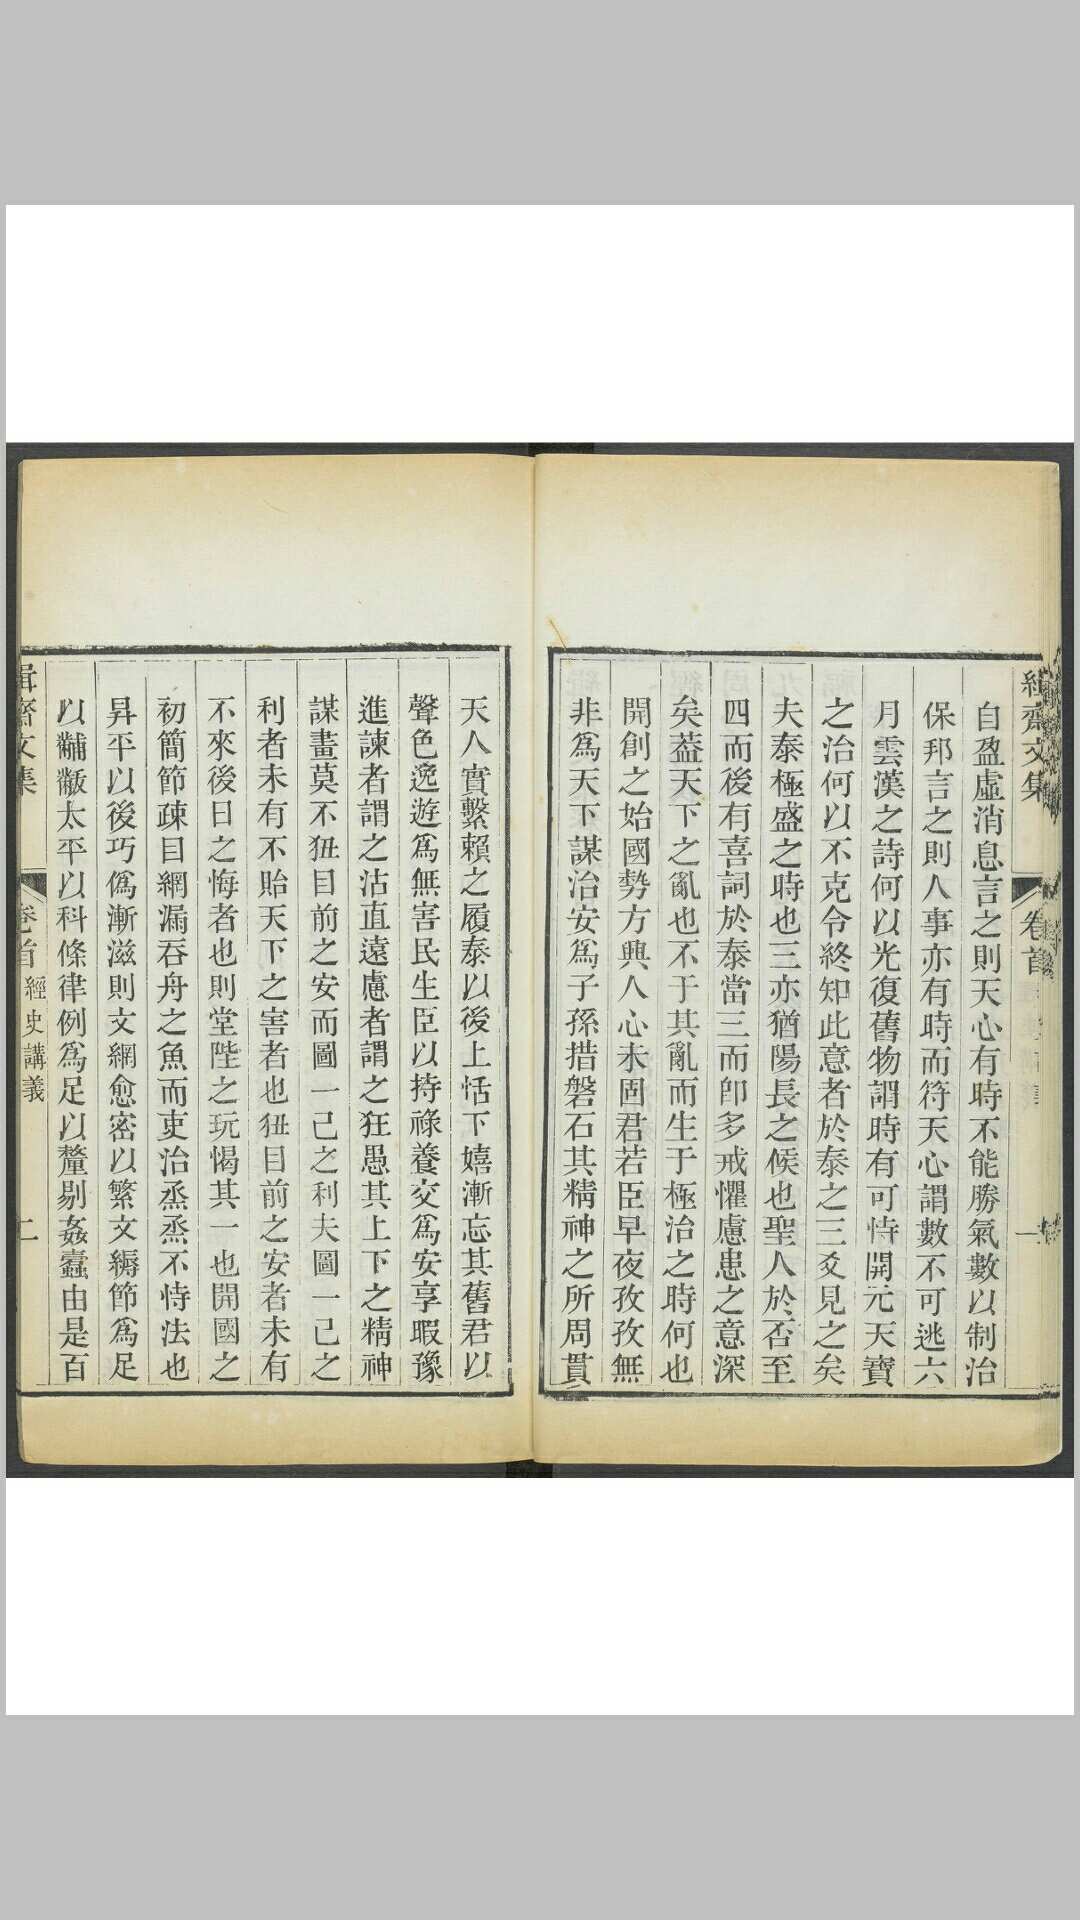 緝齋文集
卷首
一
自盈虛消息言之則天心有時不能勝氣數以制治
保邦言之則人事亦有時而符天心謂數不可逃六
月雲漢之詩何以光復舊物謂時有可恃開元天寶
之治何以不克令終知此意者於泰之三爻見之矣
夫泰極盛之時也三亦猶陽長之候也聖人於否至
四而後有喜詞於泰當三而卽多戒懼慮患之意深
矣葢天下之亂也不于其亂而生于極治之時何也
開創之始國勢方興人心未固君若臣早夜孜孜無
非爲天下謀治安爲子孫措磐石其精神之所周貫
天人實繫賴之履泰以後上恬下嬉漸忘其舊君以
聲色逸遊爲無害民生臣以持祿養交爲安享暇豫
進諫者謂之沽直遠慮者謂之狂愚其上下之精神
謀畫莫不狃目前之安而圖一己之利夫圖一己之
利者未有不貽天下之害者也狃目前之安者未有
不來後日之悔者也則堂陛之玩愒其一也開國之
初簡節疎目網漏吞舟之魚而吏治烝烝不恃法也
昇平以後巧僞漸滋則文網愈密以繁文縟節爲足
以黼黻太平以科條律例爲足以釐剔姦蠹由是百
緝齋文集
卷首
經史講義
二